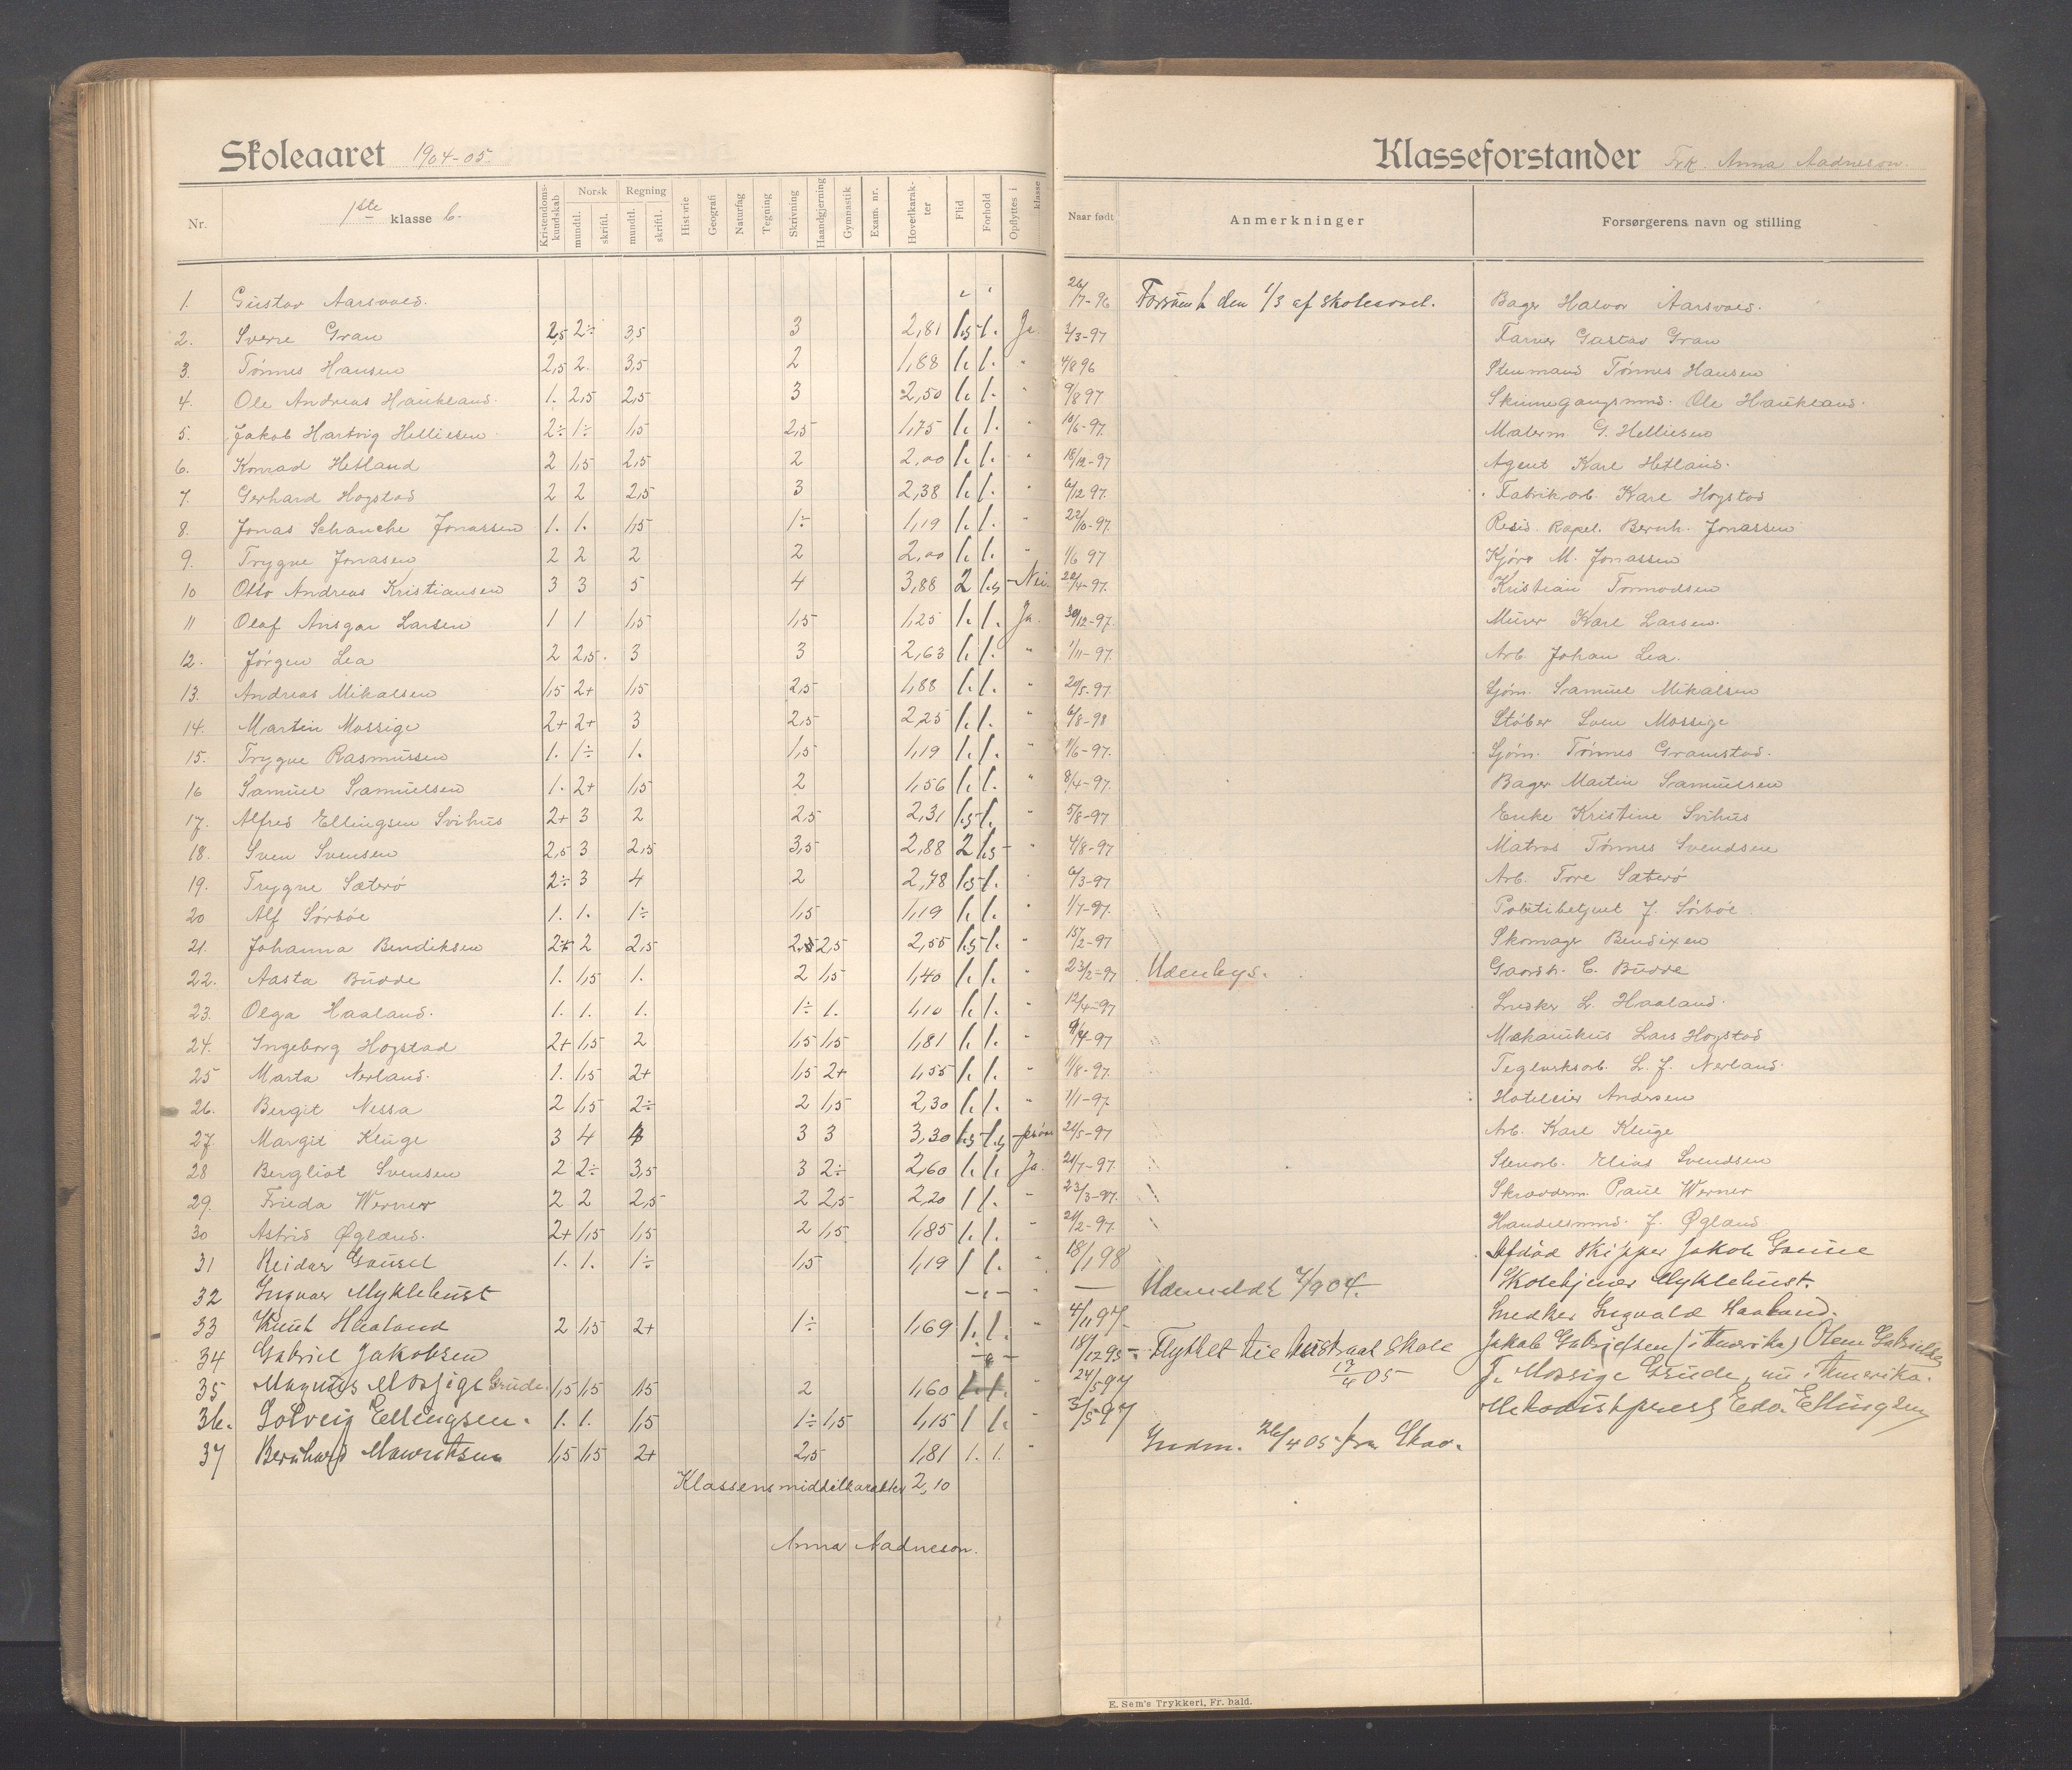 Skoleaaret 1904-05.
Nr. 1ste klasse b. Kristendomskundskab Norsk mundtl. skriftl. Regning mundtl. skriftl. Historie Geografi Naturfag Tegning Skrivning Haandgjerning Gymnastik Exam. nr. Hovedkarakter Flid Forhold Opflyttes i klasse
1. Gustav Aarsvold.
2. Sverre Gran 2,5 2÷ 3,5 3 2,81 1,5 1. Ja.
3. Tönnes Hansen 2,5 2. 3,5 2 1,88 1. 1. "
4. Ole Andreas Haukland. 1. 2,5 2,5 3 2,50 1. 1. "
5. Jakob Hartvig Helliesen 2÷ 1÷ 1,5 2,5 1,75 1. 1. "
6. Konrad Hetland 2 1,5 2,5 2 2,00 1. 1. "
7. Gerhard Hogstad 2 2 2,5 3 2,38 1. 1. "
8. Jonas Schanche Jonassen 1. 1. 1,5 1÷ 1,19 1. 1. "
9. Trygve Jonasen 2 2 2 2 2,00 1. 1. "
10 Otto Andreas Kristiansen 3 3 5 4 3,88 2 1,5 Nei.
11 Olaf Ansgar Larsen 1 1 1,5 1,5 1,25 1. 1. Ja.
12. Jörgen Lea 2 2,5. 3 3 2,63 1. 1. "
13. Andreas Mikalsen 1,5 2+ 1,5 2,5 1,88 1. 1. "
14. Martin Mossige 2+ 2+ 3 2,5 2,25 1. 1. "
15. Trygve Rasmussen 1. 1÷ 1. 1,5 1,19 1. 1. "
16 Samuel Samuelsen 1. 2+ 1,5 2 1,56 1. 1. "
17. Alfred Ellingsen Svihus 2+ 3 2 2,5 2,31 1,5 1. "
18. Sven Svensen 2,5 3 2,5 3,5 2,88 2 1,5 "
19. Trygve Sæterö 2÷ 3 4 2 2,78 1,5 1. "
20 Alf Sörböe 1. 1. 1÷ 1,5 1,19 1. 1. "
21. Johanna Bendiksen 2+ 2 2,5 2,5 2,5 2,55 1,5 1. "
22. Aasta Budde 1. 1,5 1. 2 1,5 1,40 1. 1. "
23. Olga Haaland. 1. 1. 1. 1÷ 1. 1,10 1. 1. "
24. Ingeborg Hogstad 2+ 1,5 2 1,5 1,5 1,81 1. 1. "
25 Marta Nerland. 1. 1,5 2+ 1,5 2+ 1,55 1. 1. "
26. Bergit Nessa 2 1,5 2÷ 2 1,5 2,30 1. 1. "
27 Margit Kluge 3 4 4 3 3 3,30 1,5 1,5
28 Bergliot Svensen 2 2÷ 3,5 3 2÷ 2,60 1. 1. Ja.
29. Frieda Werner 2 2 2,5 2 2,5 2,20 1 1. "
30 Astrid Øgland. 2+ 1,5 1,5 2 1,5 1,85 1. 1. "
31 Reidar Gausel 1. 1. 1÷ 1,5 1,19 1 1. "
32 Ingvar Myklebust "
33 Knut Haaland 2 1,5 2+ 1÷ 1,69 1. 1. "
34 Gabriel Jakobsen
35 Magnus Mossige Grude. 1,5 1,5 1,5 2 1,60 1. 1. "
36. Solveig Ellingsen. 1. 1. 1,5 1÷ 1,5 1,15 1 1. "
37 Bernhard Mauritsen 1,5 1,5 2+ 2,5 1,81 1. 1. "
Klassens middelkarakter 2,10
Anna Aadneson.
Klasseforstander Frk. Anna Aadneson.
Naar født Anmerkninger Forsørgerens navn og stilling
26/7-96 den 1/3 af skoleaaret. Bager Halvor Aarsvold.
3/3-97 Farver Gustav Gran
4/8 96 Stenmand Tönnes Hansen
9/8 97 Ole Haukland.
10/6-97. Malerm. G. Helliesen
18/12-97 Agent Karl Hetland.
6/12 97. Fabrikarb. Karl Hogstad
22/10-97. Resid. Kapel. Bernh. Jonassen
1/6 97 M. Jonassen
20/4-97. Kristian Tormodsen
30/12-97. Murer Karl Larsen.
1/11-97. Arb. Johan Lea.
20/5-97. Sjöm. Samuel Mikalsen
6/8-98 Stöber Sven Mossige
1/6-97. Sjöm. Tönnes Gramstad.
8/4-97. Bager Martin Samuelsen
5/8-97 Enke Kristine Svihus
4/8-97 Matros Tönnes Svendsen
6/3-97 Arb. Tore Sæterö
1/7-97. Politibetjent J. Sörböe.
15/2-97 Skomager Bendixen
23/2-97 Udenbys. Gaardbr. C. Budde
12/4-97 Snedker L. Haaland.
9/4-97 Mekanikus Lars Hogstad
11/8-97. Teglverksarb. L. J. Nerland.
1/1-97. Hoteleier Andersen
21/5-97 Arb. Karl Kluge
21/7-97. Stenarb. Elias Svendsen
23/3-97. Skrædderm. Paul Werner
21/2-97. Handelsmd. J. Øgland
18/1 98 Afdöd skipper Jakob Gausel
— Udmeldt 7/9 04. Myklebust.
4/11 97. Snedker Ingvald Haaland.
18/12 95 Flyttet til skole 17/4 05 Jakob Gabrielsen (i Amerika)
24/5 97 J. Mossige Grude, nu i Amerika.
3/5 97 Methodistprest Edv. Ellingsen
Indm. 26/4 05 fra
E. Sem's Trykkeri, Fr. hald.